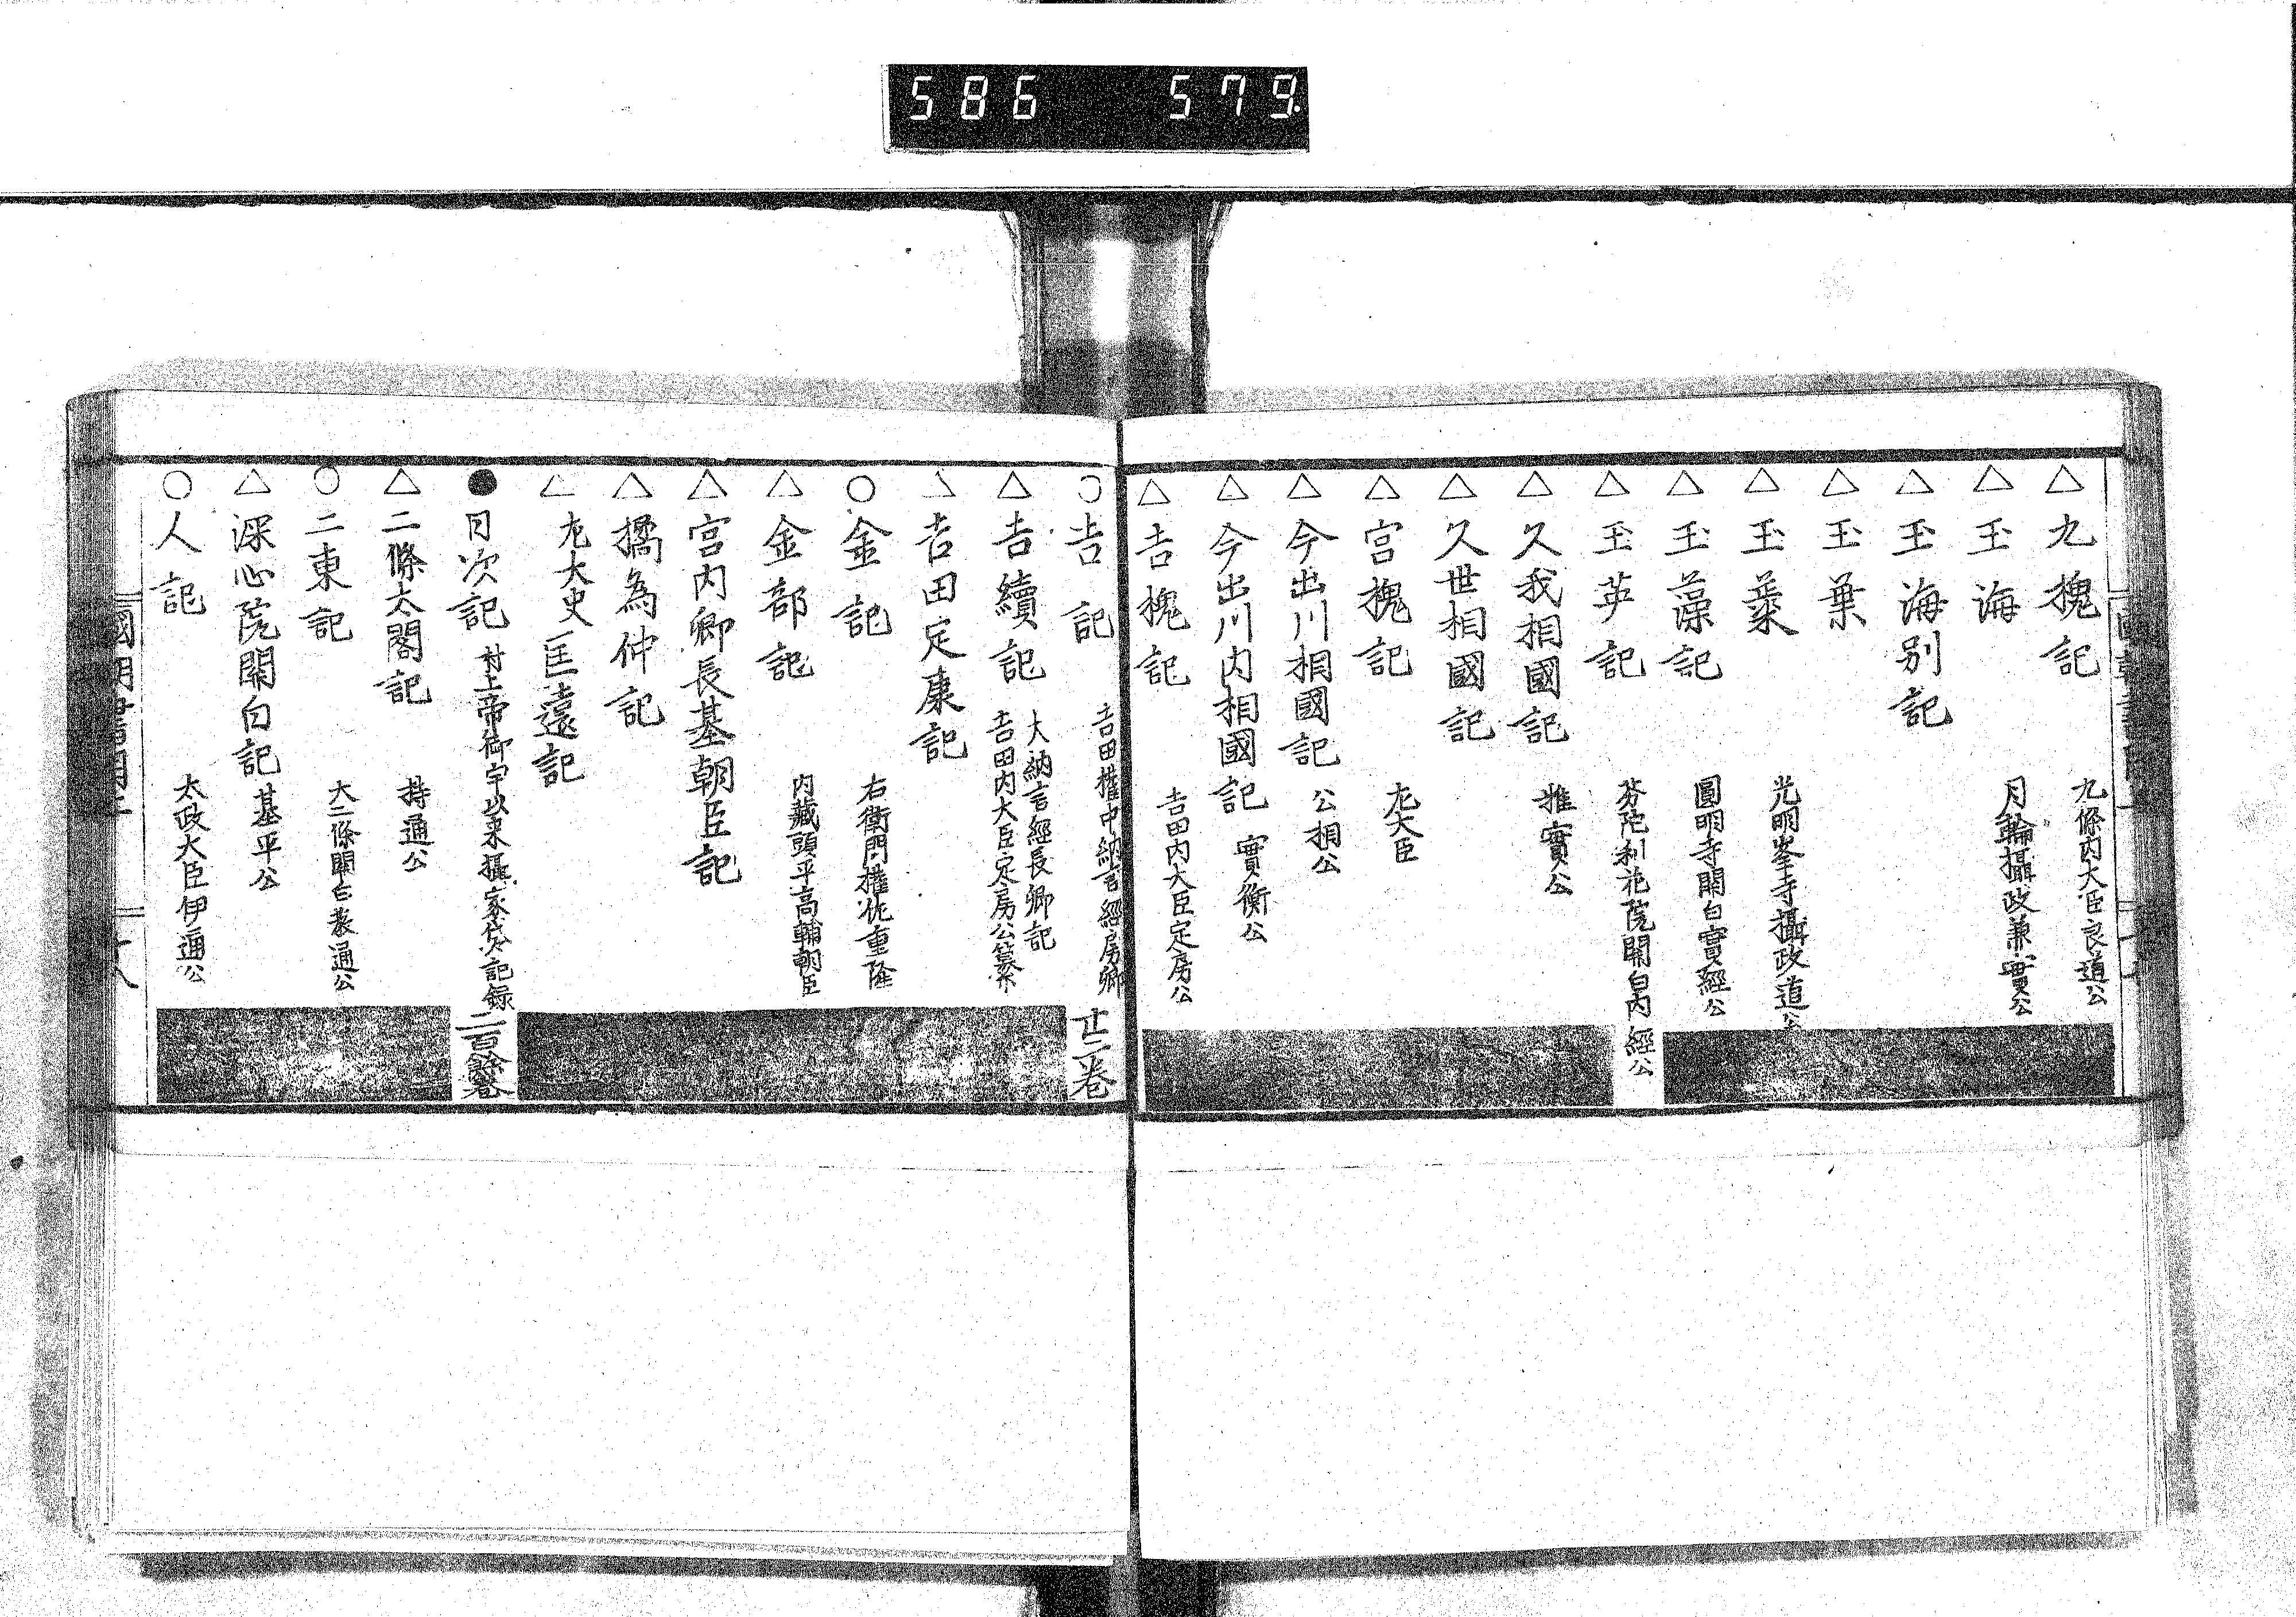 586 579
△九槐記 九條内大臣良通公
△玉海 月輪攝政兼實公
△玉海別記
△玉葉
△玉蘂 光明峯寺攝政道公
△玉藻記 圓明寺關白實經公
△玉英記 芬陀利花院關白内經公
△久我相國記 雅實公
△久世相國記
△宮槐記 左大臣
△今出川相國記 公相公
△今出川内相國記 實衡公
△吉槐記 吉田内大臣定房公
○吉記 吉田權中納言經房卿 廿二卷
△吉續記 大納言經長卿記
吉田内大臣定房公纂
△吉田定康記
○金記 右衛門權佐重隆
△金部記 内藏頭平高輔朝臣
△宮内卿長基朝臣記
△橘為仲記
△左大史匡遠記
●日次記 村上帝御宇以來攝家代々記録 二百餘卷
△二條太閤記 持通公
○二東記 大二條關白教通公
△深心院關白記 基平公
○人記 太政大臣伊通公